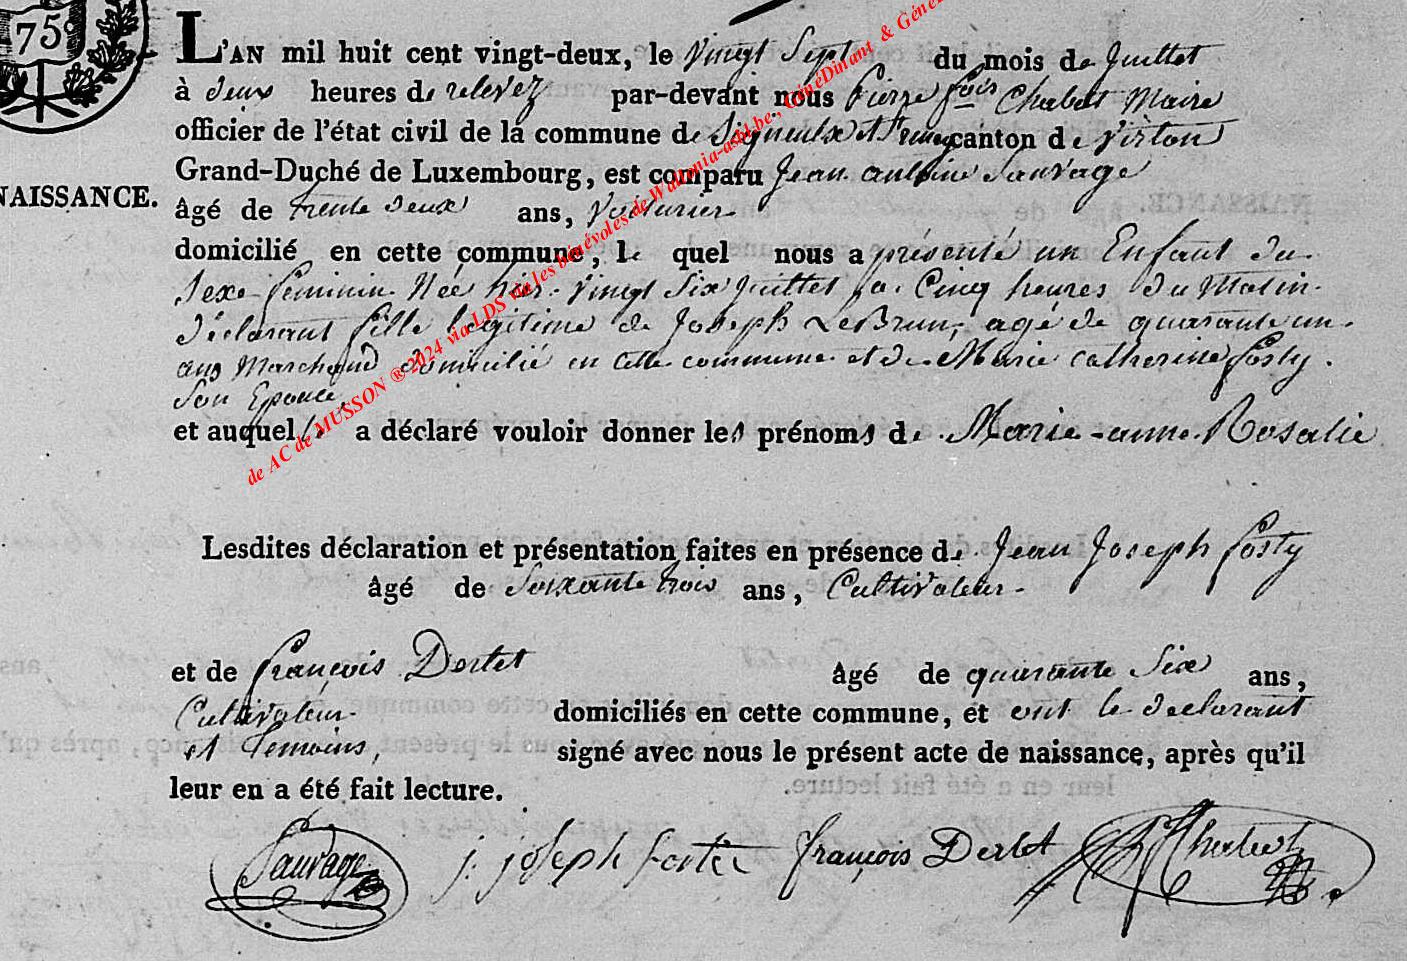 75c
L'AN mil huit cent vingt-deux, le Vingt Sept du mois de Juillet
à deux heures de relevez par-devant nous Pierre fois Chabot Maire
officier de l'état civil de la commune de Signeulx et canton de Virton
Grand-Duché de Luxembourg, est comparu Jean antoine Sauvage
NAISSANCE.
âgé de trente deux ans, Voiturier
domicilié en cette commune, le quel nous a présenté un Enfant du
Sexe feminin Née hier Vingt Six Juillet a Cinq heures Du Matin
déclarant fille legitime de Joseph LeBrun, agé de quarante un
ans Marchand domicilié en cette commune et de Marie catherine Losty.
Son Epouce,
et auquel a déclaré vouloir donner les prénoms de Marie-anne Rosalie
Lesdites déclaration et présentation faites en présence de Jean Joseph Losty
âgé de Soixante trois ans, Cultivateur
et de françois Dertet âgé de quarante Six ans,
Cultivateur domiciliés en cette commune, et ont le declarant
et Temoins, signé avec nous le présent acte de naissance, après qu'il
leur en a été fait lecture.
Sauvage j. joseph françois Dertet Chabot
de AC de MUSSON ® 2024 via LDS via les bénévoles de Wallonia-asbl.be, GénéDinant & Géné